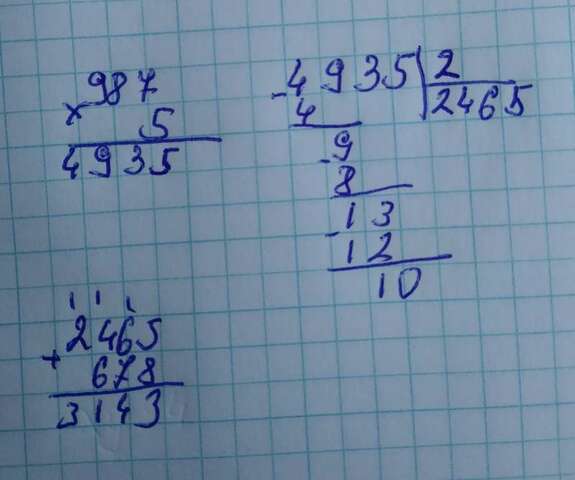 987
× 5
4935
- 4935 | 2
4 | 2465
- 9
8
- 13
12
10
1 1 1
2465
+ 678
3143